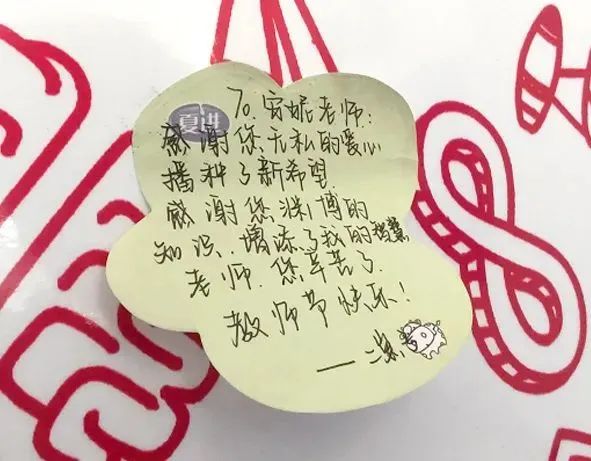 夏进
To. 安妮老师：
感谢您无私的爱心
播种了新希望.
感谢您渊博的
知识.增添了我的智慧
老师.您辛苦了.
教师节快乐！